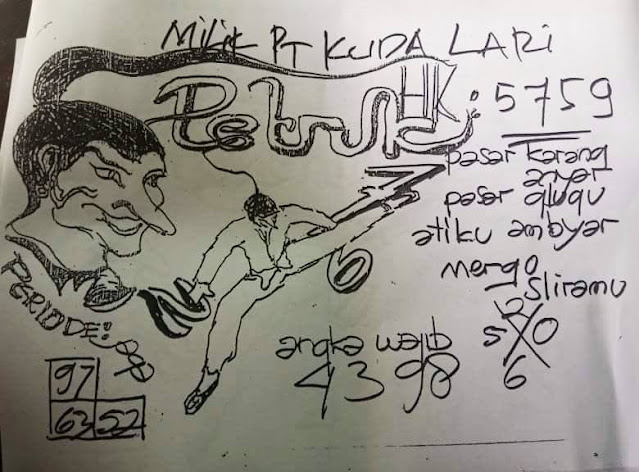 MILIK PT KUDA LARI
Petruk HK: 5759
pasar karang
anyar
pasar glugu
atiku ambyar
mergo
sliramu
6
PERIODE:
angka wajib
4398
5 X 0
6
97
63 52